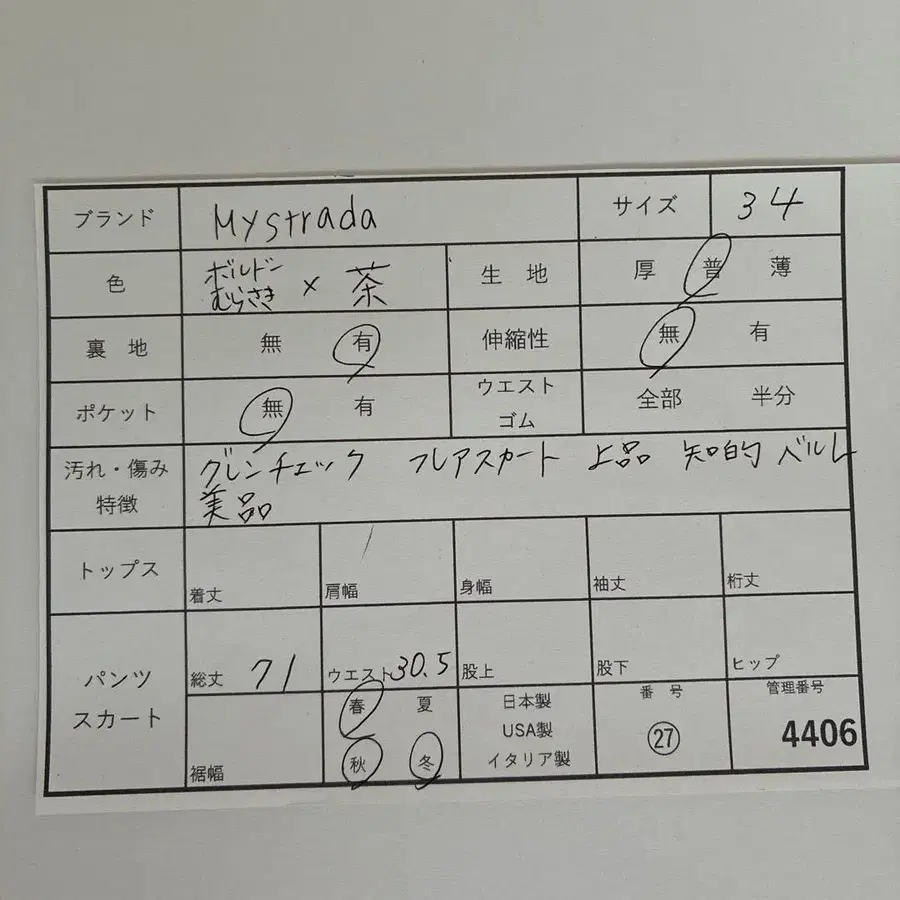 ブランド Mystrada サイズ 34
色 ボルドー むらさき × 茶 生地 厚 普 薄
裏地 無 有 伸縮性 無 有
ポケット 無 有 ウエストゴム 全部 半分
汚れ・傷み 特徴 グレンチェック フレアスカート 上品 知的 ベルト
美品
トップス 着丈 肩幅 身幅 袖丈 裄丈
パンツ スカート 総丈 71 ウエスト 30.5 股上 股下 ヒップ
裾幅 春 夏 秋 冬 日本製 USA製 イタリア製 番号 ㉗ 管理番号 4406